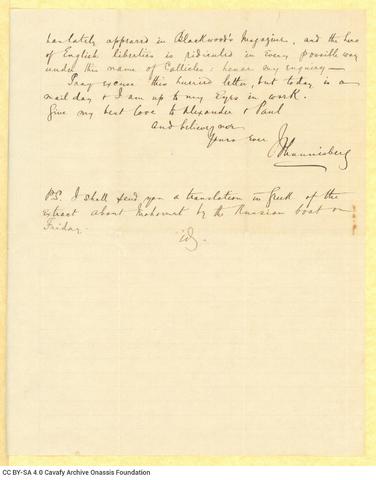 has lately appeared in Blackwood's Magazine, and the hero
of English liberties is ridiculed in every possible way
under this name of Callicles: hence my enquiry —
Pray excuse this hurried letter, but today is a
mail day & I am up to my eyes in work.
Give my best love to Alexander & Paul
And believe me
Yours ever
P.S. I shall send you a translation in Greek of the
extract about Mahomet by the Russian boat on
Friday.
CC BY-SA 4.0 Cavafy Archive Onassis Foundation